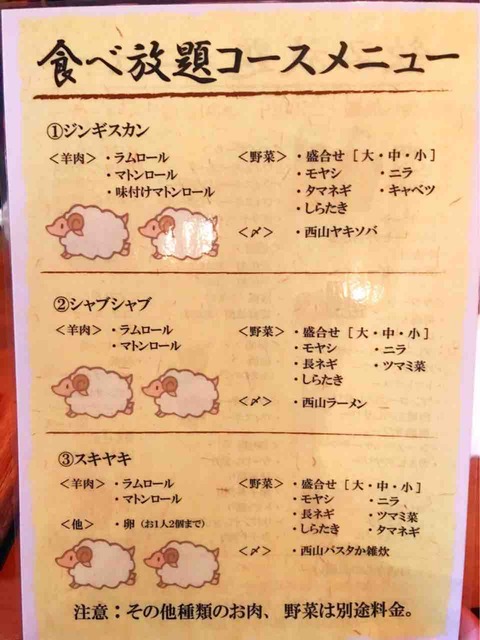 食べ放題コースメニュー
①ジンギスカン
＜羊肉＞・ラムロール ＜野菜＞・盛合せ［大・中・小］
・マトンロール ・モヤシ ・ニラ
・味付けマトンロール ・タマネギ ・キャベツ
・しらたき
＜〆＞・西山ヤキソバ
②シャブシャブ
＜羊肉＞・ラムロール ＜野菜＞・盛合せ［大・中・小］
・マトンロール ・モヤシ ・ニラ
・長ネギ ・ツマミ菜
・しらたき
＜〆＞・西山ラーメン
③スキヤキ
＜羊肉＞・ラムロール ＜野菜＞・盛合せ［大・中・小］
・マトンロール ・モヤシ ・ニラ
・長ネギ ・ツマミ菜
＜他＞・卵（お1人2個まで） ・しらたき ・タマネギ
＜〆＞・西山パスタか雑炊
注意：その他種類のお肉、野菜は別途料金。